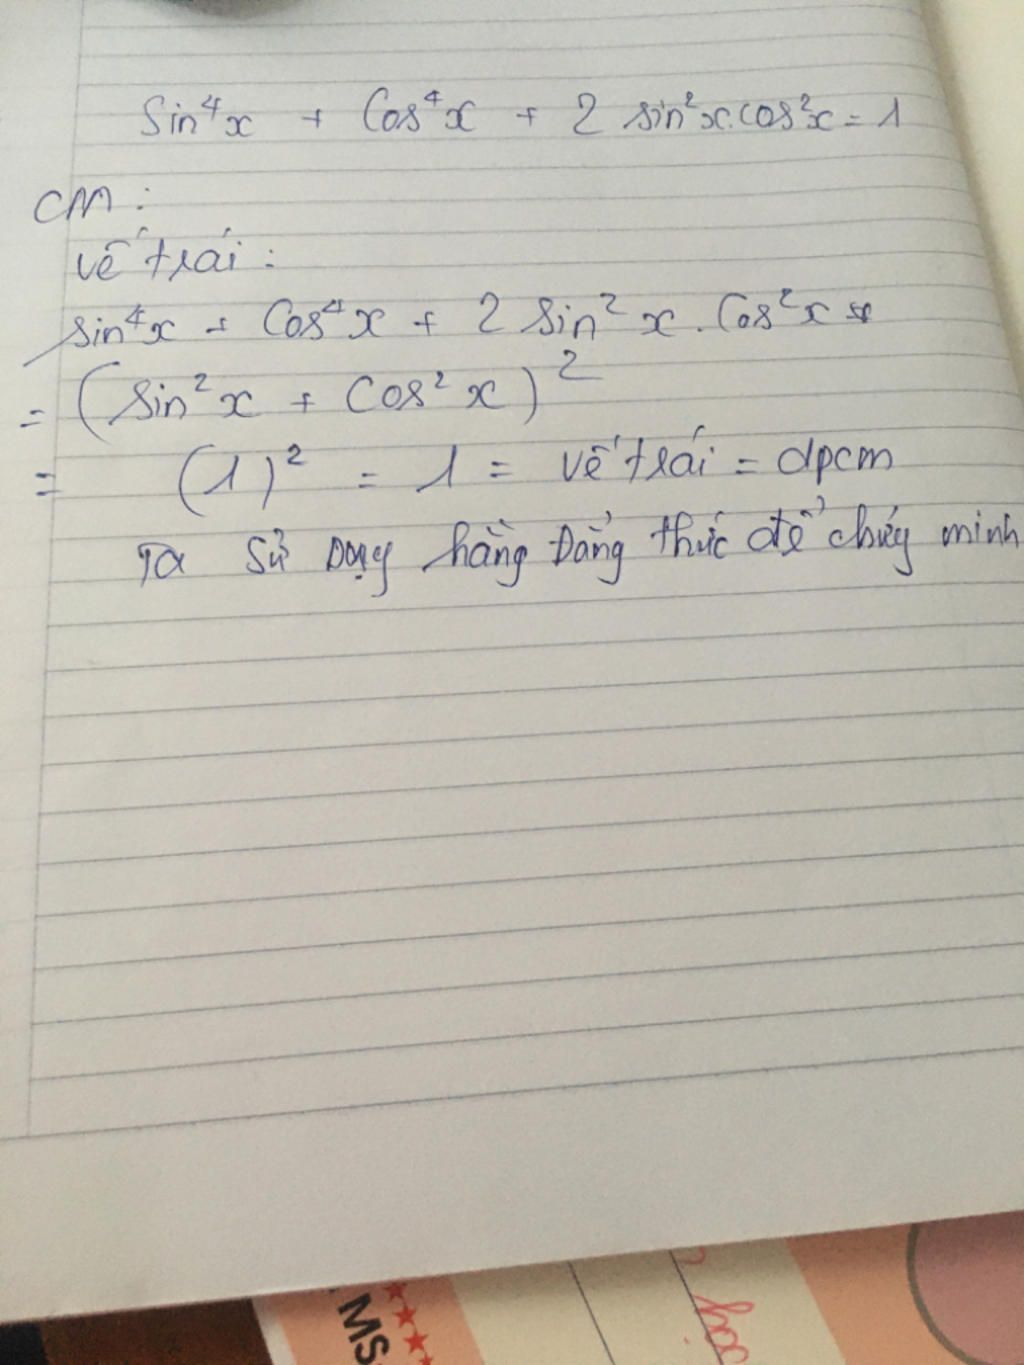 Sin⁴x + Cos⁴x + 2 sin²x.cos²x = 1
CM:
vế trái:
sin⁴x + Cos⁴x + 2 sin²x. Cos²x
= (sin²x + cos²x)²
= (1)² = 1 = vế trái = dpcm
Ta sử dụng hằng Đẳng thức để chứng minh
MS